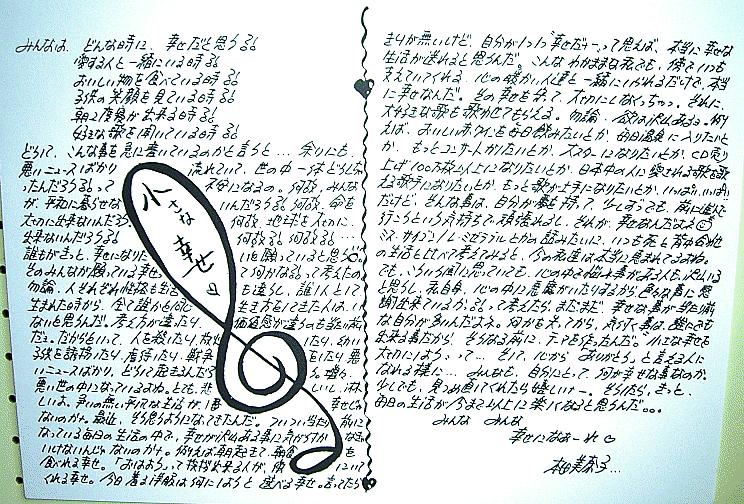 みんなは、どんな時に、幸せだと思う??
愛する人と一緒にいる時??
おいしい物を食べている時??
子供の笑顔を見ている時??
朝1度寝が出来る時??
好きな歌を聞いている時??
どうして、こんな事を急に書いているのかと言うと… 余りにも、
悪いニュースばかり 流れていて、世の中一体どうしちゃ
ったんだろう??って 不安になるの。何故、みんな
が、平和に暮らせな いんだろう??何故、命を
大切に出来ないんだろう?? 何故、地球を大切に…
出来ないんだろう?? 何故??何故??…
誰もがきっと、幸せになりた いと願っていると思う
そのみんなが願っている幸せ って何かな??って考えたの
勿論、人それぞれ性格も生活 も違うし、誰1人として
生まれた時から、全て誰かと同じ 生き方をしてきた人は、い
ないと思うんだ。考え方が違ったり、 価値感が違うのも
だよ。だからといって、人を殺したり、
子供を誘拐したり、虐待したり、戦争
いニュースばかり。どうして起きるんだろう
悪い世の中になっているよね。とても、悲
しいよ、争いの無い平和な生活が、1番 幸せじゃ
ないのかナ。最近、そう思うようになってきたんだ。ついつい当たり前に
なっている毎日の生活の中で、幸せが沢山ある事に気が付か
いけないんじゃないのかナ。例えば朝起きて、朝食
食べれる幸せ。「おはよう」って挨拶出来る人が、傍にいて
くれる幸せ。今日着る洋服は何にしようと選べる幸せ。言ってたら
小さな
幸せ
きりが無いけど、自分が1つ1つ“幸せだナーって思えば、本当に幸せな
生活が送れると思うんだ。こんなわがままな私でも、傍でいつも
支えていてくれる、心の暖かい人達と一緒にいられるだけで、本当
に幸せなんだ。その幸せを、大切にしなくっちゃ。それに、
大好きな歌も歌わせてもらえる。勿論、欲は沢山あるよ。例
えば、おいしい赤ワインを毎日飲みたいとか、毎日温泉に入りたいと
か、もっとコンサートがしたいとか、大スターになりたいとか、CD売り
上げ100万枚以上になりたいとか、日本中の人に愛される歌を歌
える歌手になりたいとか、もっと歌が上手になりたいとか、いっぱい、いっぱい
だけど、そんな事は、自分が夢を持って、少しずつでも、前に進んで
行こうという気持ちで、頑張れるし、それが、幸せなんだよね
ミス・サイゴン/レ・ミゼラブルとかの
の生活と比べて考えてみると、今の私達は本当に恵まれてるよね。
でも、こういう風に思っていても、心の中で悩み事がある人も、沢山いる
と思うし、私自身、心の中に悪魔がいたりするから色々な事に感
謝出来ているか??って考えたら、まだまだ、幸せな事が当たり前
な自分が多いんだよネ。何かを失ってから、気付く事は、誰にでも
出来る事だから、そうなる前に、テーマを作ったんだ。“小さな幸せを
大切にしよう”って…。そして、心から“ありがとう”と言える人に
なれる様に… みんなも、自分にとって、何が幸せな事なのか、
少しでも、見つめ直してくれたら嬉しいナー。そうしたら、きっと、
毎日の生活が今まで以上に楽しくなると思うんだ。。。
みんな みんな
幸せになぁーれ♡
本田美奈子…